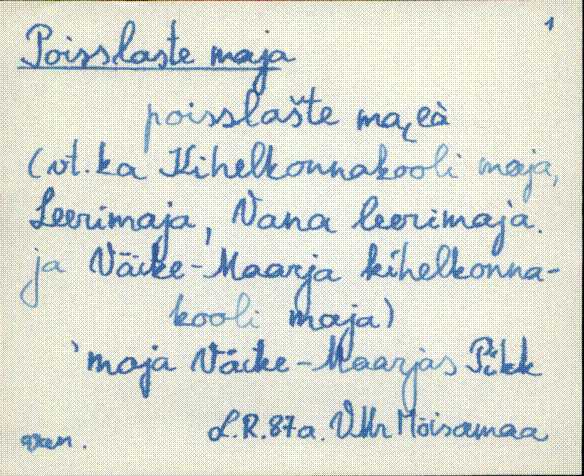 1
Poisslaste maja
poisslašte ma
(vt. ka Kihelkonnakooli maja,
Leerimaja, Vana leerimaja.
ja Väike-Maarja kihelkonna-
kooli maja)
'maja Väike-Maarjas Pikk
L.R. 87a. VMr Mõisamaa